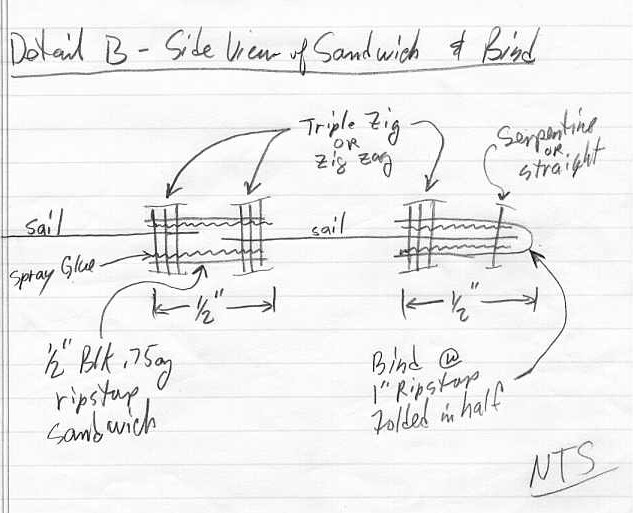 Detail B - Side View of Sandwich & Bind
Triple Zig
OR
Zig Zag
Serpentine
OR
straight
sail
sail
Spray Glue
1/2"
1/2"
1/2" Blk .75oz
ripstop
sandwich
Bind @
1" Ripstop
Folded in half
NTS